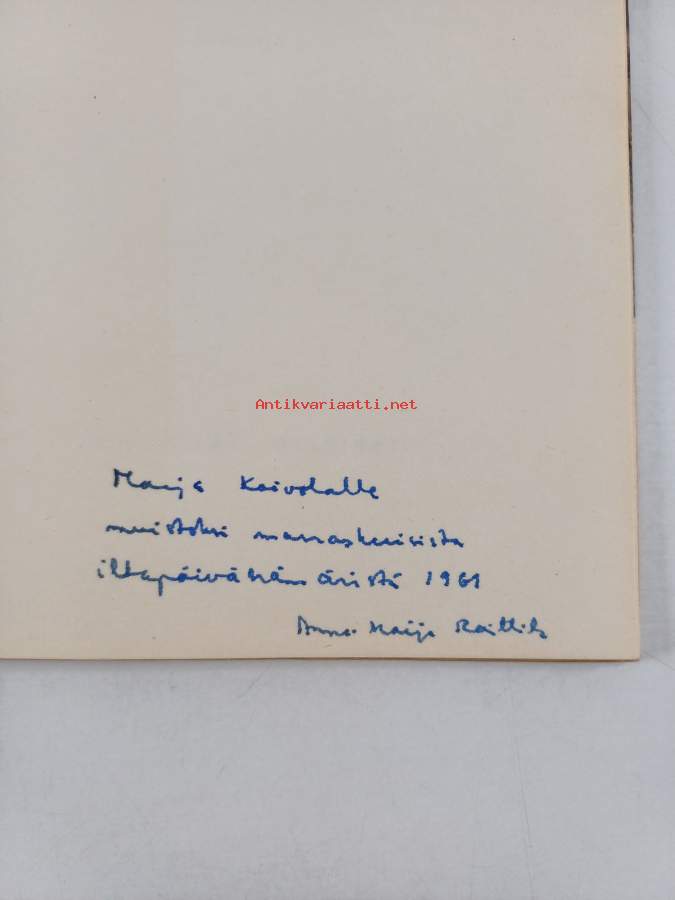 Antikvariaatti.net
Marja Koivolalle
muistoksi marraskuisista
iltapäivähämäristä 1961
Anna-Maija Raittila